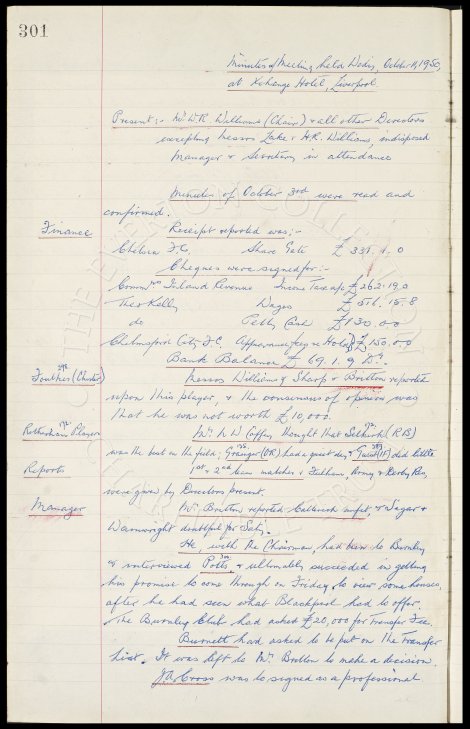 301
Minutes of Meeting held Wedny, October 11, 1950,
at Xchange Hotel, Liverpool
Present:- Mr. W.R. Williams (Chair) & all other Directors
excepting Messrs Zake & H.R. Williams, indisposed
Manager & Secretary in attendance
Minutes of October 3rd were read and
confirmed.
Finance Receipt reported was:-
Chelsea F.C. Share Gate £ 331. 9. 0
Cheques were signed for:-
Commrs Inland Revenue Income Tax a/c £262. 19. 0
Theo Kelly Wages £ 511. 15. 8
do Petty Cash £130. 0. 0
Chelmsford City F.C. Appearance fee re £150. 0. 0
Bank Balance £ 69. 1. 9 Dr.
(Chester) Messrs Williams, Sharp & Britton reported
upon this player, & the consensus of opinion was
that he was not worth £10,000.
Rotherham Player Mr. thought that Selkirk (R B)
was the best on the field; Grainger (OR) had a quiet day, & Guest (IF) did little
Reports 1st & 2nd team matches & Fulham, Army & Derby Res.
were given by Directors present.
Manager Mr. Britton reported unfit, &
Wainwright doubtful for Saty.
He, with the Chairman had been to Burnley
& interviewed Potts, & ultimately succeeded in getting
his promise to come through on Friday to view some houses,
after he had seen what Blackpool had to offer.
The Burnley Club had asked £20,000 for Transfer Fee.
Burnett had asked to be put on the Transfer
List. It was left to Mr. Britton to make a decision.
J.A. Cross was to signed as a professional.